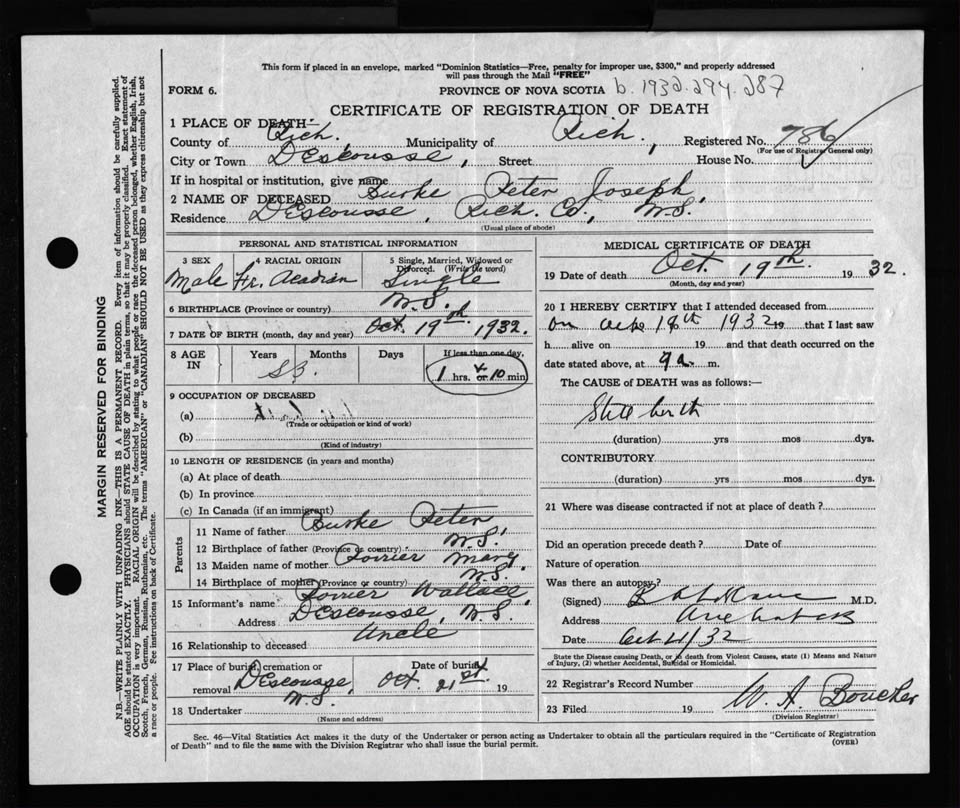 This form if placed in an envelope, marked "Dominion Statistics—Free, penalty for improper use, $300," and properly addressed
will pass through the Mail "FREE"
FORM 6.
PROVINCE OF NOVA SCOTIA b. 1932.294.287
CERTIFICATE OF REGISTRATION OF DEATH
1 PLACE OF DEATH—
County of Rich. Municipality of Rich. , Registered No. 786
(For use of Registrar General only)
City or Town DEscousse, Street House No.
If in hospital or institution, give name
2 NAME OF DECEASED Burke Peter Joseph
Residence DEscousse, Rich. Co., N.S.
(Usual place of abode)
PERSONAL AND STATISTICAL INFORMATION
3 SEX 4 RACIAL ORIGIN 5 Single, Married, Widowed or Divorced. (Write the word)
Male Fr. Acadian Single
6 BIRTHPLACE (Province or country) N.S.
7 DATE OF BIRTH (month, day and year) Oct. 19th 1932.
8 AGE IN Years Months Days If less than one day,
SB. 1 hrs. or 10 min
9 OCCUPATION OF DECEASED
(a)
(Trade or occupation or kind of work)
(b)
(Kind of industry)
10 LENGTH OF RESIDENCE (in years and months)
(a) At place of death
(b) In province
(c) In Canada (if an immigrant)
Parents
11 Name of father Burke Peter
12 Birthplace of father (Province or country) N.S.
13 Maiden name of mother Poirier Mary
14 Birthplace of mother (Province or country) N.S.
15 Informant's name Poirier Wallace
Address DEscousse, N.S.
16 Relationship to deceased Uncle
17 Place of burial, cremation or removal DEscousse, N.S.
Date of burial Oct. 21st. 19
18 Undertaker
(Name and address)
MEDICAL CERTIFICATE OF DEATH
19 Date of death Oct. 19th. 1932.
(Month, day and year)
20 I HEREBY CERTIFY that I attended deceased from
on Oct 19th 1932 19 that I last saw
h alive on 19 and that death occurred on the
date stated above, at 9 a. m.
The CAUSE of DEATH was as follows:—
Still birth
(duration) yrs mos dys.
CONTRIBUTORY
(duration) yrs mos dys.
21 Where was disease contracted if not at place of death?
Did an operation precede death? Date of
Nature of operation
Was there an autopsy?
(Signed) M.D.
Address
Date Oct 21/32
State the Disease causing Death, or in death from Violent Causes, state (1) Means and Nature
of Injury, (2) whether Accidental, Suicidal or Homicidal.
22 Registrar's Record Number
23 Filed 19 W. A. Boucher
(Division Registrar)
Sec. 46—Vital Statistics Act makes it the duty of the Undertaker or person acting as Undertaker to obtain all the particulars required in the "Certificate of Registration
of Death" and to file the same with the Division Registrar who shall issue the burial permit.
(OVER)
MARGIN RESERVED FOR BINDING
N.B.—WRITE PLAINLY WITH UNFADING INK—THIS IS A PERMANENT RECORD. Every item of information should be carefully supplied.
AGE should be stated EXACTLY. PHYSICIANS should STATE CAUSE OF DEATH in plain terms, so that it may be properly classified. Exact statement of
OCCUPATION is very important. RACIAL ORIGIN will be described by stating to what people or race the deceased person belonged, whether English, Irish,
Scotch, French, German, Russian, Ruthenian, etc. The terms "AMERICAN" or "CANADIAN" SHOULD NOT BE USED as they express citizenship but not
a race or people. See instructions on back of Certificate.